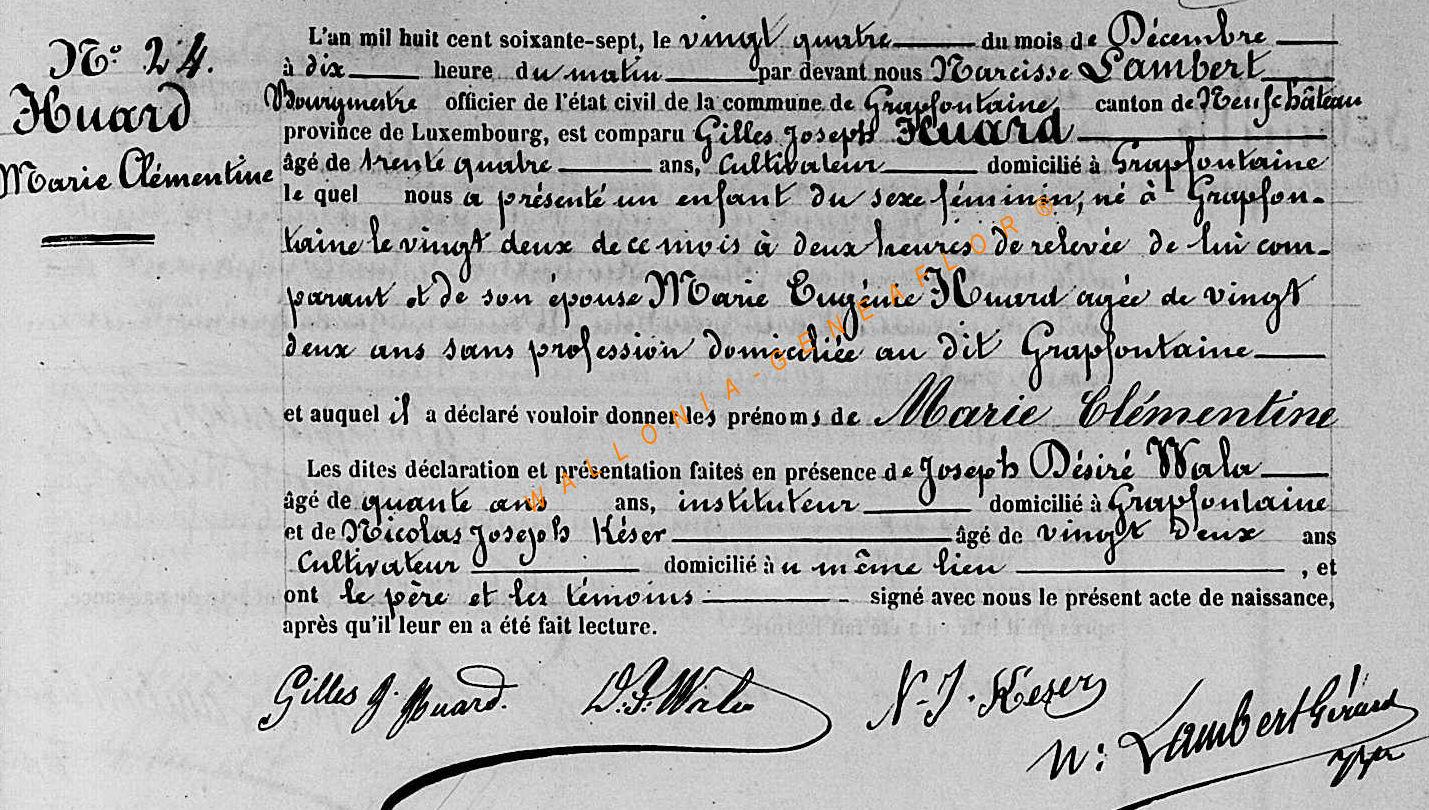 N.º 24.
Huard
Marie Clémentine
L'an mil huit cent soixante-sept, le vingt quatre du mois de Décembre
à dix heure du matin par devant nous Narcisse Lambert
Bourgmestre officier de l'état civil de la commune de Grapfontaine canton de Neufchâteau
province de Luxembourg, est comparu Gilles Joseph Huard
âgé de trente quatre ans, Cultivateur domicilié à Grapfontaine
le quel nous a présenté un enfant du sexe féminin, né à Grapfon-
taine le vingt deux de ce mois à deux heures de relevée de lui com-
parant et de son épouse Marie Eugénie Huard agée de vingt
deux ans sans profession domiciliée au dit Grapfontaine
et auquel il a déclaré vouloir donner les prénoms de Marie Clémentine
Les dites déclaration et présentation faites en présence de Joseph Désiré Wala
âgé de quante ans ans, instituteur domicilié à Grapfontaine
et de Nicolas Joseph Késer âgé de vingt deux ans
Cultivateur domicilié à u même lieu , et
ont le père et les témoins signé avec nous le présent acte de naissance,
après qu'il leur en a été fait lecture.
WALLONIA-GENEAFLOR ®
Gilles J. Huard.
D. J. Wala
N-J. Keser
N: Lambert Gérard